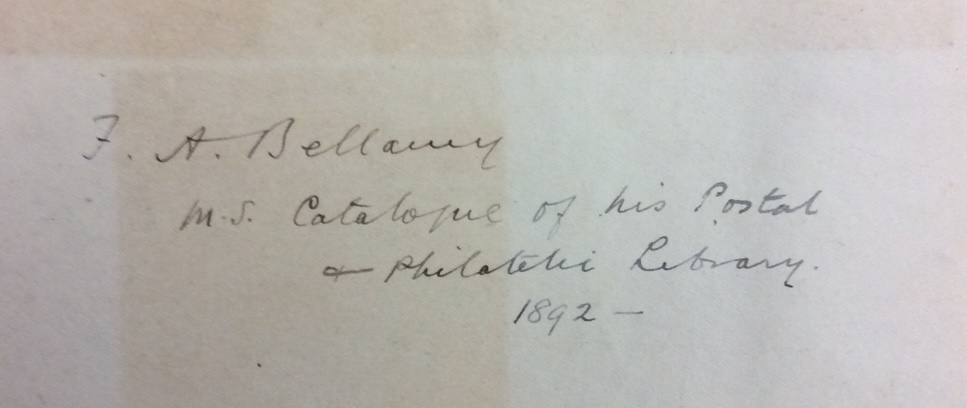 F. A. Bellamy
M.S. Catalogue of his Postal
& Philatelic Library.
1892 –